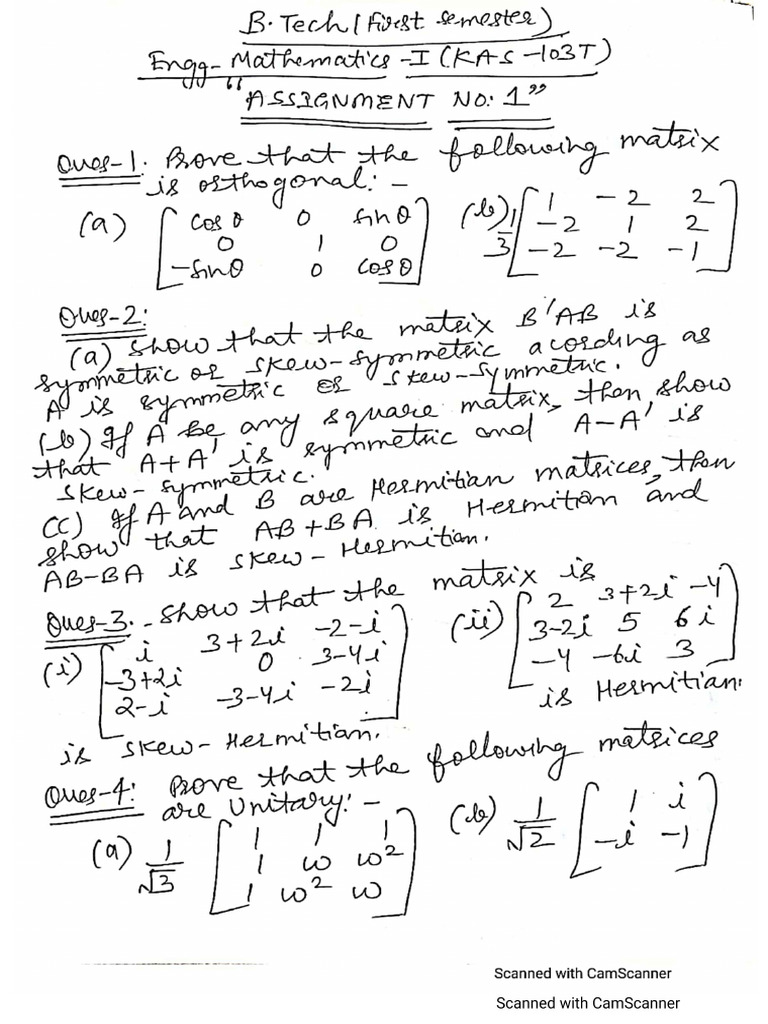 B.Tech (First semester)
Engg- Mathematics -I (KAS-103T)
"ASSIGNMENT NO: 1"
Ques-1. Prove that the following matrix
is orthogonal:-
(a) [cosθ 0 sinθ (b) 1/3 [1 -2 2
0 1 0 -2 1 2
-sinθ 0 cosθ] -2 -2 -1]
Ques-2:
(a) Show that the matrix B'AB is
symmetric or skew-symmetric acording as
A is symmetric or skew-symmetric.
(b) If A be any square matrix, then show
that A+A' is symmetric and A-A' is
skew-symmetric.
(c) If A and B are Hermitian matrices, then
show that AB+BA is Hermitian and
AB-BA is skew-Hermitian.
Ques-3. Show that the matrix is
(i) [i 3+2i -2-i (ii) [2 3+2i -4
-3+2i 0 3-4i 3-2i 5 6i
2-i -3-4i -2i] -4 -6i 3]
is Hermitian.
is skew-Hermitian.
Ques-4: Prove that the following matrices
are Unitary:-
(a) 1/√3 [1 1 1 (b) 1/√2 [1 i
1 ω ω² -i -1]
1 ω² ω]
Scanned with CamScanner
Scanned with CamScanner